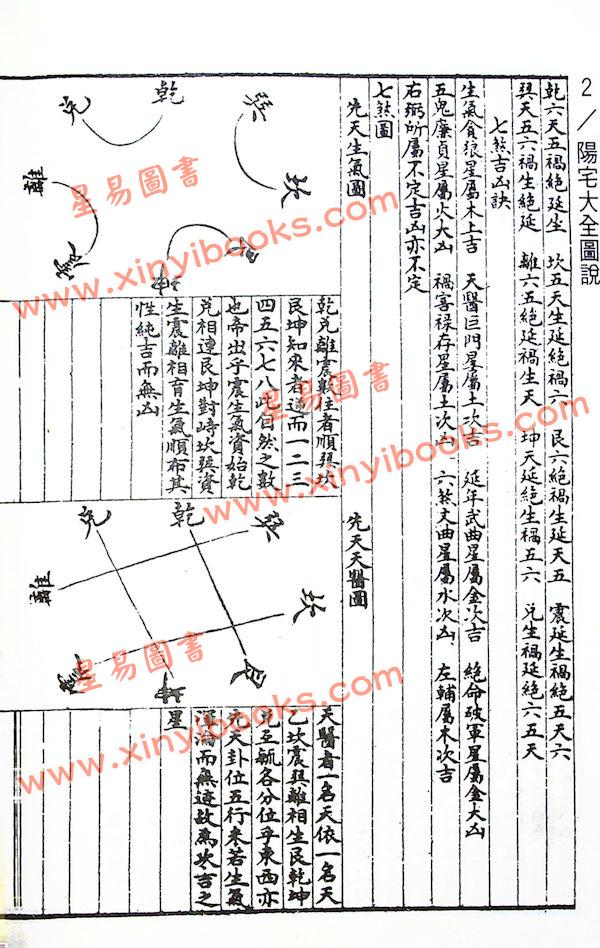 2／陽宅大全圖說
乾六天五禍絕延生 坎五天生延絕禍六 艮六絕禍生延天五 震延生禍絕五天六
巽天五六禍生絕延 離六五絕延禍生天 坤天延絕生禍五六 兌生禍延絕六五天
七煞吉凶訣
生氣貪狼星屬木上吉 天醫巨門星屬土次吉 延年武曲星屬金次吉 絕命破軍星屬金大凶
五鬼廉貞星屬火大凶 禍害祿存星屬土次凶、六煞文曲星屬水次凶、左輔屬木次吉
右弼所屬不定吉凶亦不定
七煞圖
先天生氣圖
巽
乾
兌
坎
離
艮
坤
震
乾兌離震數往者順巽坎
艮坤知來者逆而一二三
四五六七八此自然之數
也帝出乎震生氣資始乾
兌相連艮坤對峙坎巽資
生震離相育生氣順布其
性純吉而無凶
先天天醫圖
巽
乾
兌
坎
離
艮
坤
震
天醫者一名天依一名天
乙坎震巽離相生艮乾坤
兌互毓各分位乎東西亦
先天卦位五行來若生氣
渾淪而無迹故為次吉之
星
星易圖書
www.xinyibooks.com
星易圖書
www.xinyibooks.com
星易圖書
www.xinyibooks.com